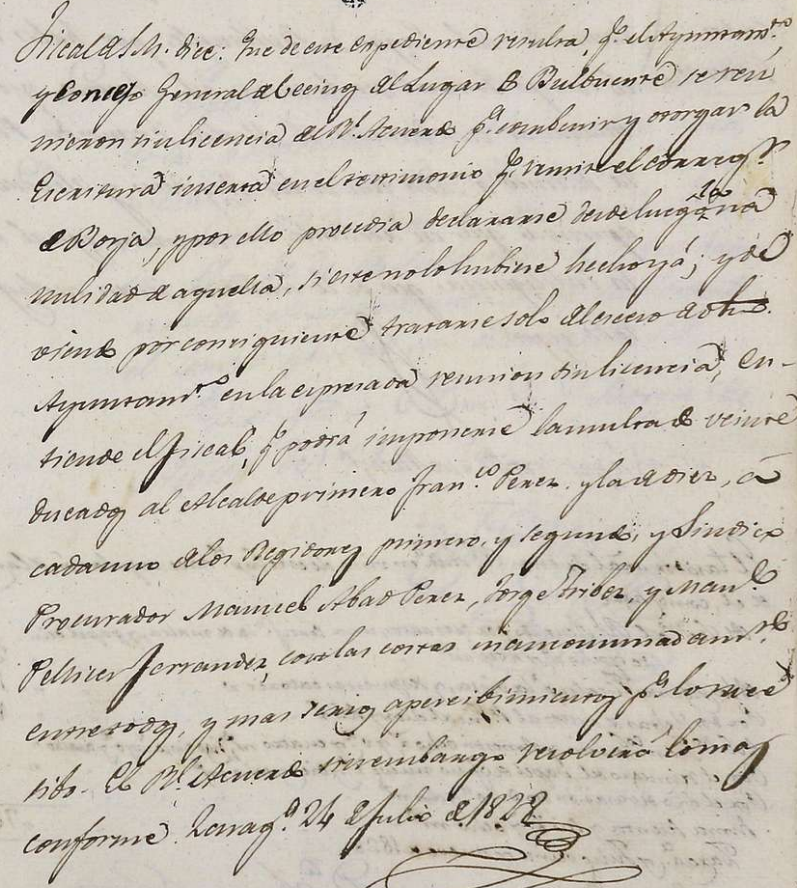 Fiscal de S.M. dice: Que de este expediente resulta, qe. el Ayuntamto.
y Concejo General de Vecinos del Lugar de Bulbuente se reu
nieron sin licencia del Rl. Acuerdo pa. combenir y otorgar la
Escritura inserta en el testimonio qe. remite el corregr.
de Borja, y por ello procedia declararse desde luego la
nulidad de aquella, si este no lo hubiese hecho yá; y de
viendo por consiguiente tratarse solo del exceso de dho.
Ayuntamto. en la expresada reunion sin licencia, en-
tiende el Fiscal, qe. podrá imponerse la multa de veinte
ducados al Alcalde primero Franco. Perez, y la de diez, á
cada uno de los Regidores primero, y segundo, y Sindico
Procurador Manuel Abad Perez, Jorge Tribez, y Manl.
Pellicer Ferrandez, con las costas mancomunadamte.
entre todos, y mas serio apercibimiento pa. lo suce
sibo. El Rl. Acuerdo sin embargo resolverá lo mas
conforme. Zaraga. 24 de Julio de 1828